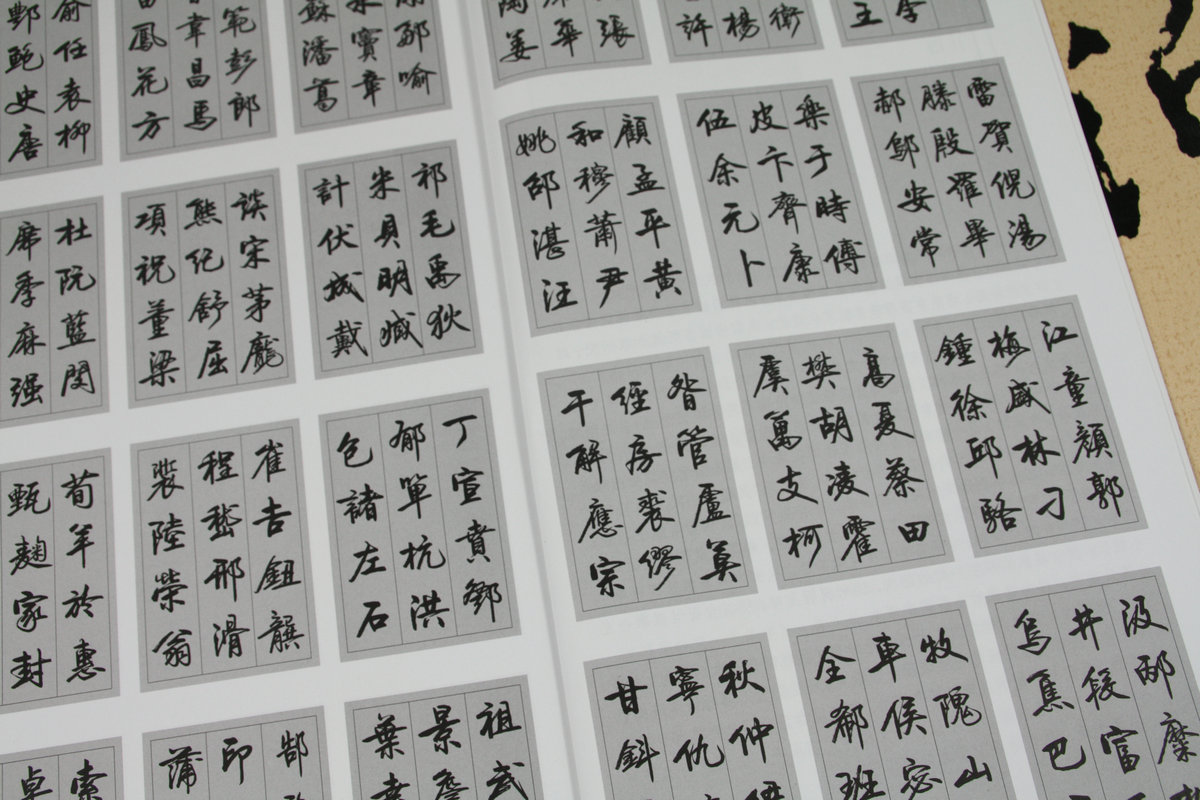 李
王
衛
楊
許
張
華
陶姜
鄒喻
竇章
蘇潘葛
範彭郎
韋昌馬
鳳花方
俞任袁柳
酆鮑史唐
雷賀倪湯
滕殷羅畢
郝鄔安常
樂于時傅
皮卞齊康
伍余元卜
顧孟平黃
和穆蕭尹
姚邵湛汪
祁毛禹狄
米貝明臧
計伏成戴
談宋茅龐
熊紀舒屈
項祝董梁
杜阮藍閔
席季麻强
江童顏郭
梅盛林刁
鍾徐邱駱
高夏蔡田
樊胡凌霍
虞萬支柯
昝管盧莫
經房裘繆
干解應宗
丁宣賁鄧
郁單杭洪
包諸左石
崔吉鈕龔
程嵇邢滑
裴陸榮翁
荀羊於惠
甄麴家封
汲邴糜
井段富
烏焦巴
牧隗山
車侯宓
全郗班
秋仲伊
寧仇
甘鈄
祖武
景詹
葉幸
郜
印
蒲
索
卓